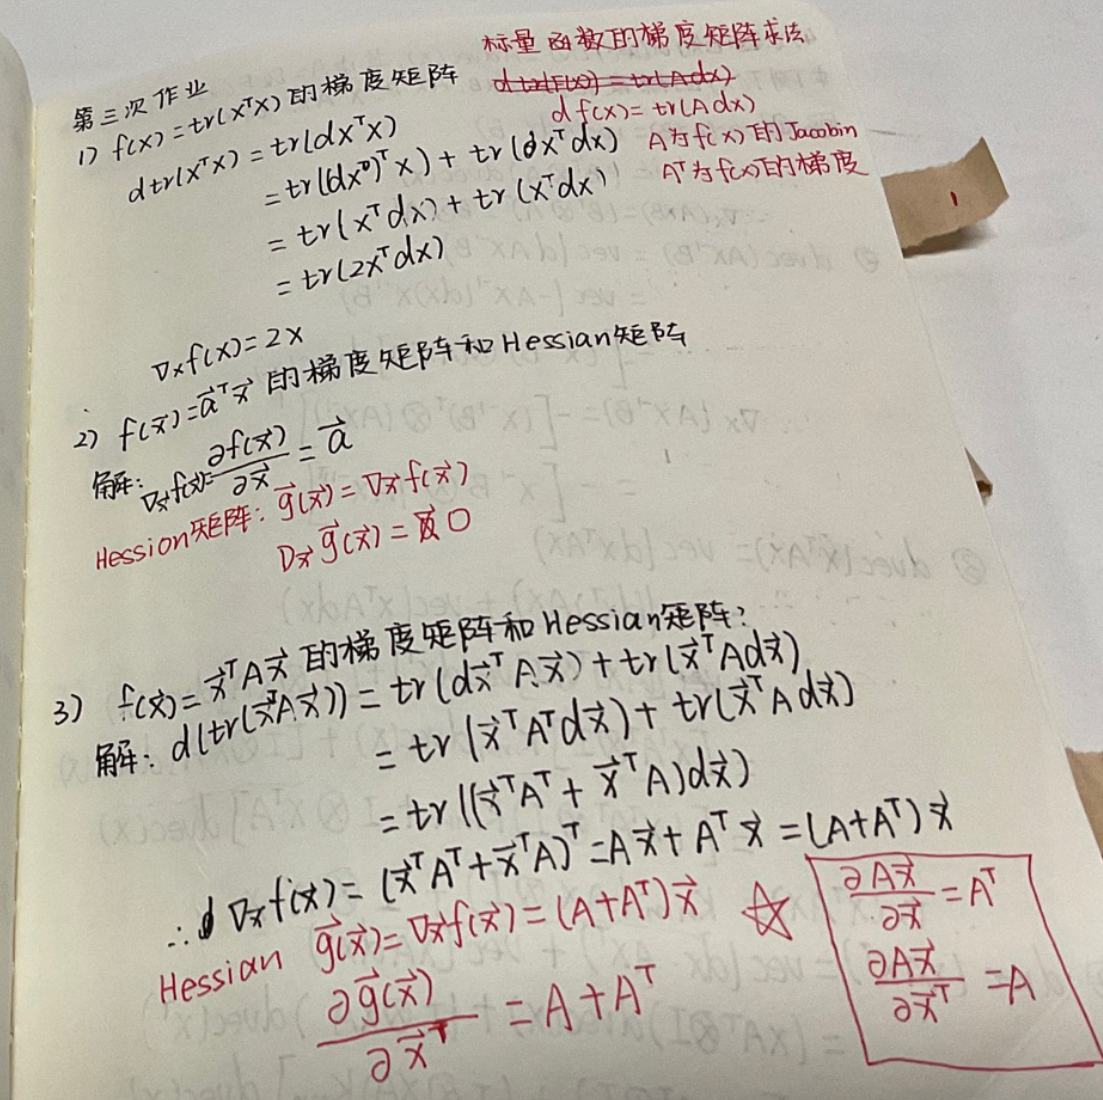 标量函数的梯度矩阵求法
d tr(F(x)) = tr(A dx)
d f(x) = tr(A dx)
A为f(x)的Jacobin
A^T为f(x)的梯度
第三次作业
1) f(x) = tr(X^T X) 的梯度矩阵
d tr(X^T X) = tr(dX^T X)
= tr((dX)^T X) + tr(X^T dX)
= tr(X^T dX) + tr(X^T dX)
= tr(2X^T dX)
∇x f(x) = 2X
2) f(x⃗) = a⃗^T x⃗ 的梯度矩阵和Hessian矩阵
解: ∇x⃗ f(x⃗) = ∂f(x⃗)/∂x⃗ = a⃗
Hession矩阵: g⃗(x⃗) = ∇x⃗ f(x⃗)
∇x⃗ g⃗(x⃗) = 0
3) f(x⃗) = x⃗^T A x⃗ 的梯度矩阵和Hessian矩阵:
解: d(tr(x⃗^T A x⃗)) = tr(dx⃗^T A x⃗) + tr(x⃗^T A dx⃗)
= tr(x⃗^T A^T dx⃗) + tr(x⃗^T A dx⃗)
= tr((x⃗^T A^T + x⃗^T A) dx⃗)
∴ ∇x f(x⃗) = (x⃗^T A^T + x⃗^T A)^T = A x⃗ + A^T x⃗ = (A + A^T) x⃗
Hessian g⃗(x⃗) = ∇x⃗ f(x⃗) = (A + A^T) x⃗
∂g⃗(x⃗)/∂x⃗^T = A + A^T
☆ ∂Ax⃗/∂x⃗ = A^T
∂Ax⃗/∂x⃗^T = A